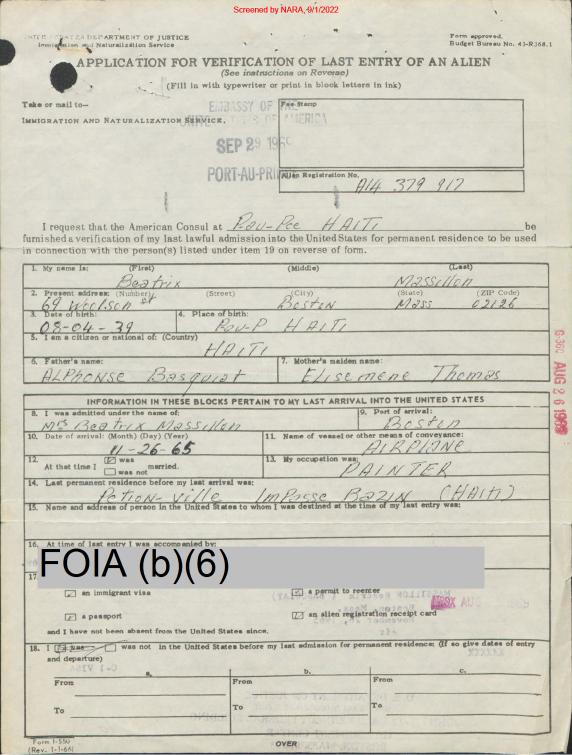 Screened by NARA, 9/1/2022
UNITED STATES DEPARTMENT OF JUSTICE
Immigration and Naturalization Service
Form approved.
Budget Bureau No. 43-R368.1
APPLICATION FOR VERIFICATION OF LAST ENTRY OF AN ALIEN
(See instructions on Reverse)
(Fill in with typewriter or print in block letters in ink)
Take or mail to—
IMMIGRATION AND NATURALIZATION SERVICE,
EMBASSY OF THE
UNITED STATES OF AMERICA
SEP 29 1969
PORT-AU-PRINCE
Fee Stamp
Alien Registration No.
A14 379 917
I request that the American Consul at Pau-Pce HAITI be
furnished a verification of my last lawful admission into the United States for permanent residence to be used
in connection with the person(s) listed under item 19 on reverse of form.
1. My name is: (First) (Middle) (Last)
Beatrix Massillon
2. Present address: (Number) (Street) (City) (State) (ZIP Code)
69 Woolson st Boston Mass 02126
3. Date of birth: 4. Place of birth:
08-04-39 Pau-P HAITI
5. I am a citizen or national of: (Country)
HAITI
6. Father's name: 7. Mother's maiden name:
ALPHONSE Basquiat Elisemene Thomas
INFORMATION IN THESE BLOCKS PERTAIN TO MY LAST ARRIVAL INTO THE UNITED STATES
8. I was admitted under the name of: 9. Port of arrival:
Mrs Beatrix Massillon Boston
10. Date of arrival: (Month) (Day) (Year) 11. Name of vessel or other means of conveyance:
11-26-65 AIRPLANE
12. was 13. My occupation was:
At that time I married.
was not PAINTER
14. Last permanent residence before my last arrival was:
Petion-ville Impasse BAZIN (HAITI)
15. Name and address of person in the United States to whom I was destined at the time of my last entry was:
16. At time of last entry I was accompanied by:
FOIA (b)(6)
17.
an immigrant visa a permit to reenter
a passport an alien registration receipt card
and I have not been absent from the United States since.
18. I was was not in the United States before my last admission for permanent residence: (If so give dates of entry
and departure)
a. b. c.
From From From
To To To
Form I-550
(Rev. 1-1-66)
OVER
G-360 AUG 26 1969